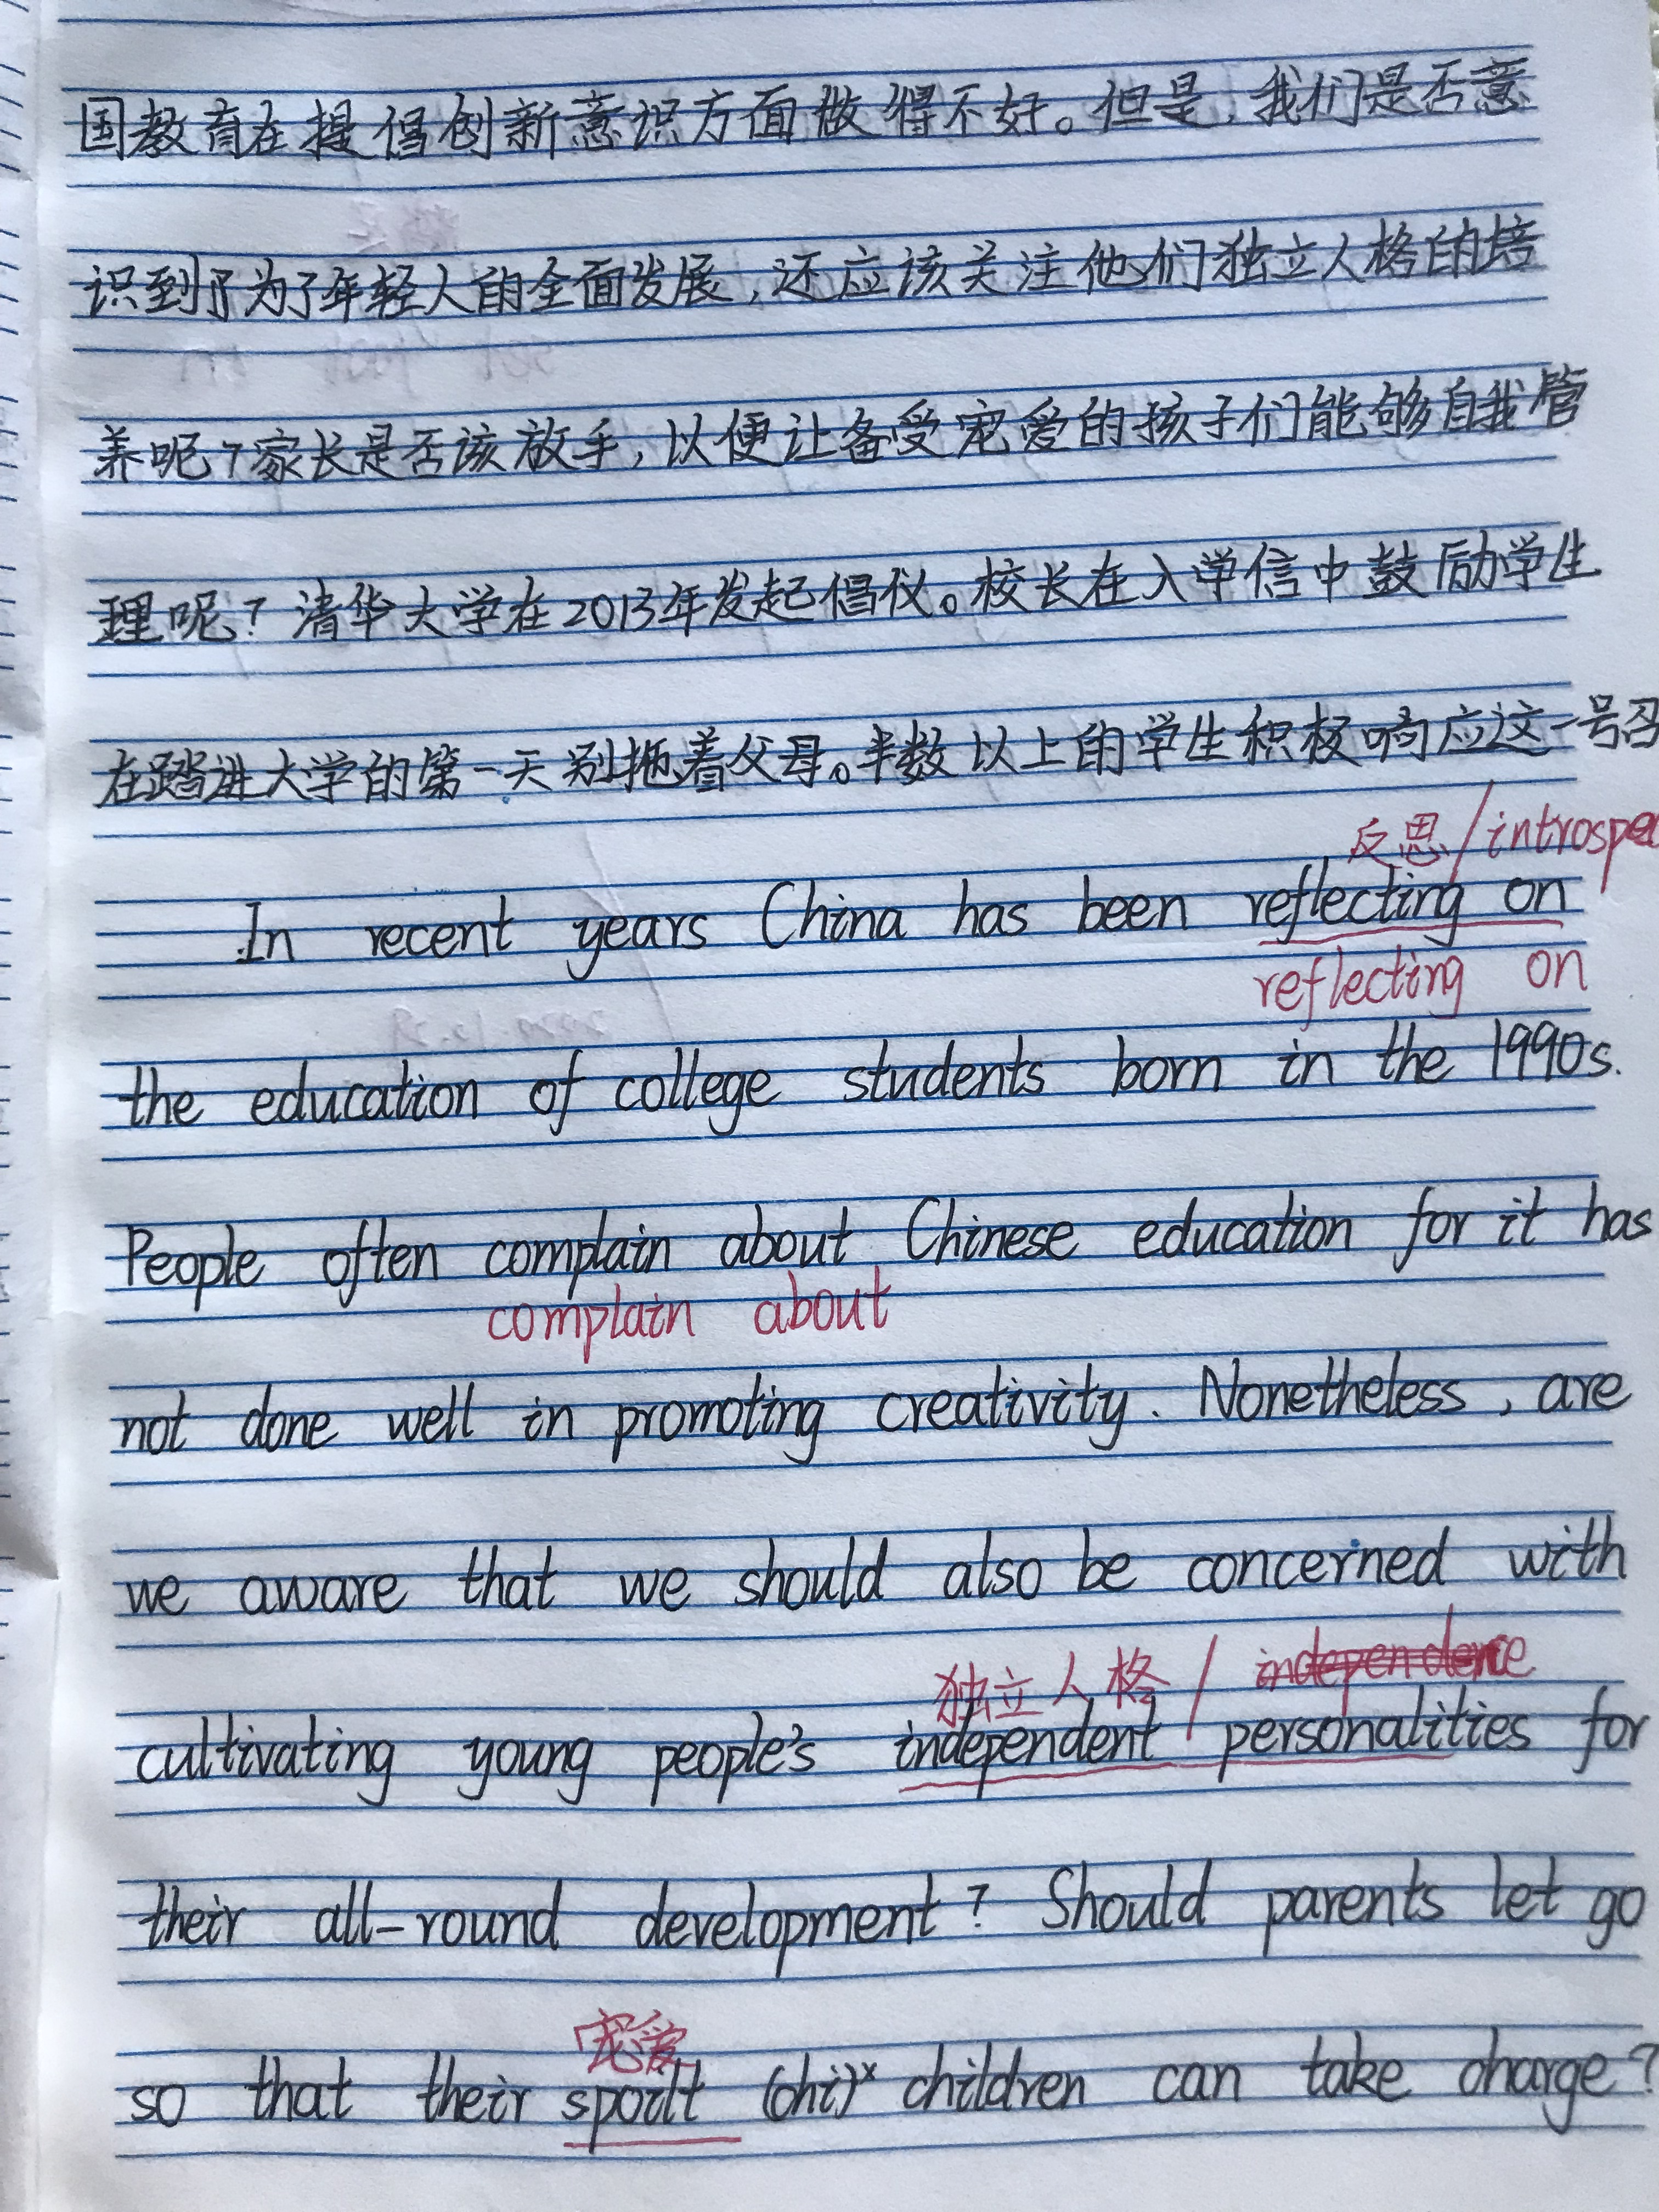 国教育在提倡创新意识方面做得不好。但是,我们是否意
识到了为了年轻人的全面发展,还应该关注他们独立人格的培
养呢?家长是否该放手,以便让备受宠爱的孩子们能够自我管
理呢?清华大学在2013年发起倡仪。校长在入学信中鼓励学生
在踏进大学的第一天别拖着父母。半数以上的学生积极响应这一号召
反思/introspe
In recent years China has been reflecting on
reflecting on
the education of college students born in the 1990s.
People often complain about Chinese education for it has
complain about
not done well in promoting creativity. Nonetheless, are
we aware that we should also be concerned with
独立人格/independence
cultivating young people's independent personalities for
their all-round development? Should parents let go
宠爱
so that their spoilt (chi)× children can take charge?